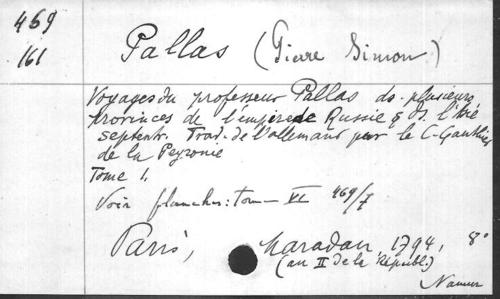 469
161
Pallas (Pierre Simon)
Voyages du professeur Pallas ds. plusieurs
provinces de l'empire de Russie & ds. l'Asie
septentr. Trad. de l'allemand par le C. Gauthier
de la Peyronie
Tome 1.
Voir planches: tome VI 469/I
Paris, Maradan, 1794, 8°
(an II de la Républ.)
Namur